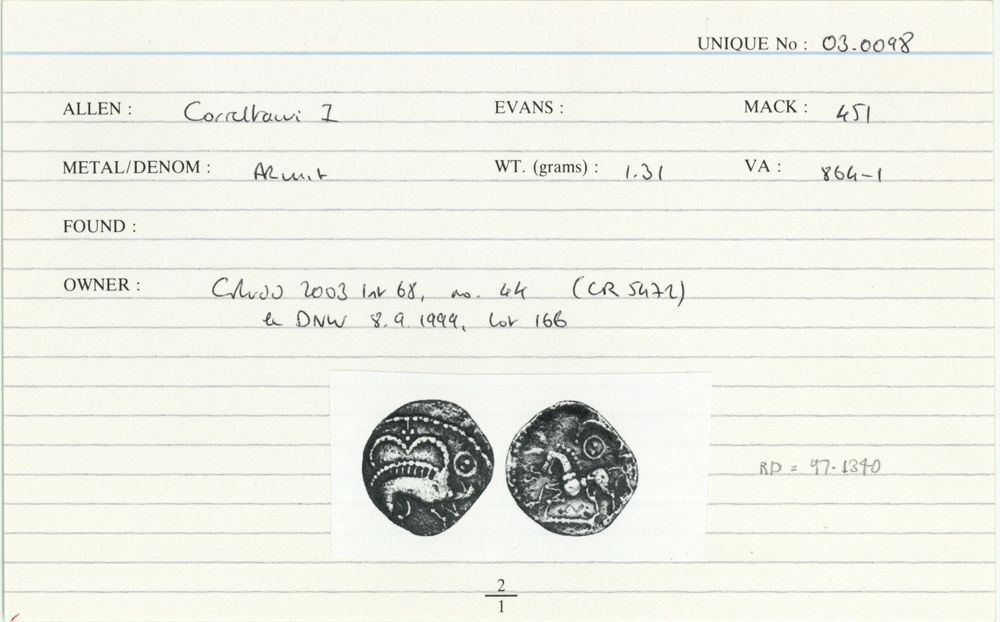 UNIQUE No : 03.0098
ALLEN : Correltauvi I EVANS : MACK : 451
METAL/DENOM : AR unit WT. (grams) : 1.31 VA : 864-1
FOUND :
OWNER : 2003 list 68, no. 44 (CR 5472)
ex DNW 8.9.1999, lot 166
RD = 97.1340
2
1